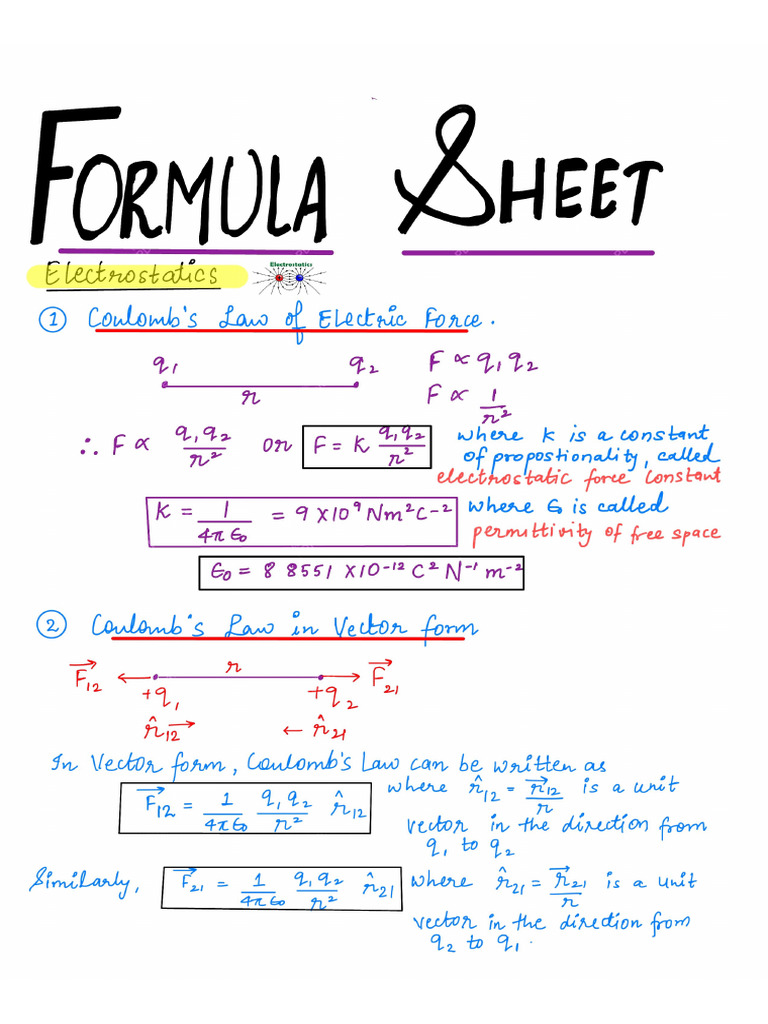 FORMULA SHEET
Electrostatics
Electrostatics
① Coulomb's Law of Electric Force.
q₁ q₂ F ∝ q₁q₂
r F ∝ 1/r²
∴ F ∝ q₁q₂/r² or F = K q₁q₂/r² where K is a constant
of propostionality, called
electrostatic force constant
K = 1/4πϵ₀ = 9 X10⁹ Nm²C⁻² where ϵ₀ is called
permittivity of free space
ϵ₀ = 8 8551 X10⁻¹² C² N⁻¹ m⁻²
② Coulomb's Law in Vector form
F⃗₁₂ r F⃗₂₁
+q₁ +q₂
r̂₁₂ → ← r̂₂₁
In Vector form, Coulomb's Law can be written as
F⃗₁₂ = 1/4πϵ₀ q₁q₂/r² r̂₁₂ where r̂₁₂ = r⃗₁₂/r is a unit
vector in the direction from
q₁ to q₂
Similarly, F⃗₂₁ = 1/4πϵ₀ q₁q₂/r² r̂₂₁ where r̂₂₁ = r⃗₂₁/r is a unit
vector in the direction from
q₂ to q₁.